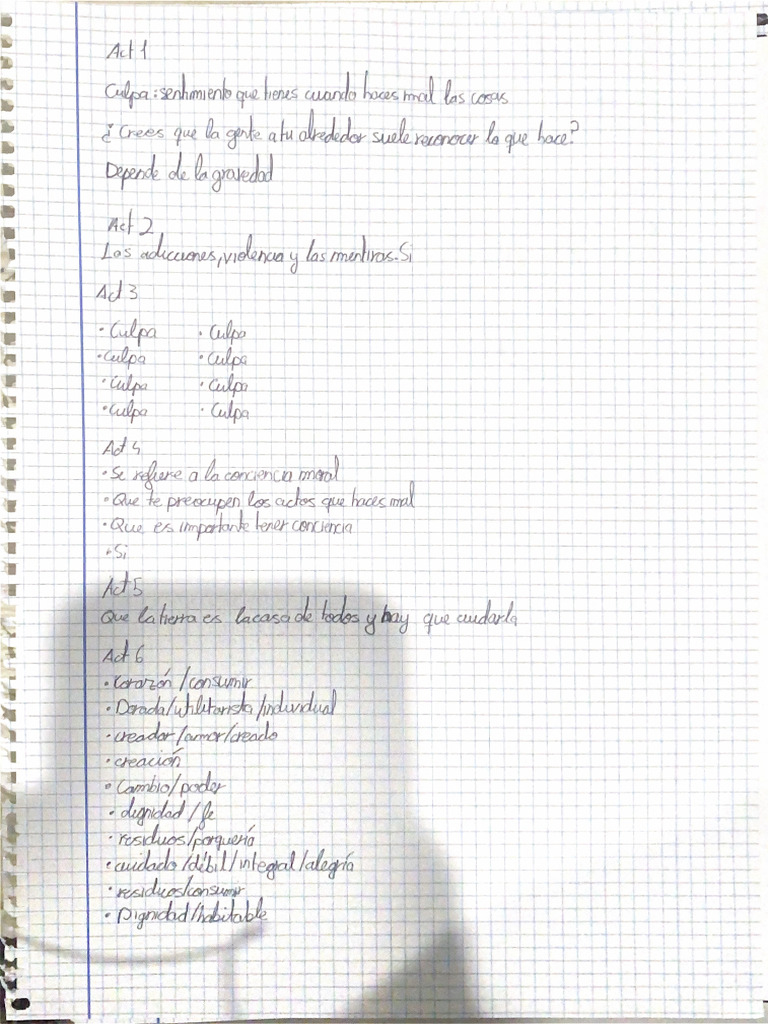 Act 1
Culpa: sentimiento que tienes cuando haces mal las cosas
¿Crees que la gente a tu alrededor suele reconocer lo que hace?
Depende de la gravedad
Act 2
Las adicciones, violencia y las mentiras. Si
Act 3
• Culpa • Culpa
• Culpa • Culpa
• Culpa • Culpa
• Culpa • Culpa
Act 4
• Se refiere a la conciencia moral
• Que te preocupen los actos que haces mal
• Que es importante tener conciencia
• Si
Act 5
Que la tierra es la casa de todos y hay que cuidarla
Act 6
• Corazón / consumir
• Dorada/utilitarista/individual
• creador/amor/creado
• creación
• Cambio/poder
• dignidad / fe
• residuos/porquería
• cuidado /débil/integral/alegría
• residuos/consumir
• Dignidad/habitable